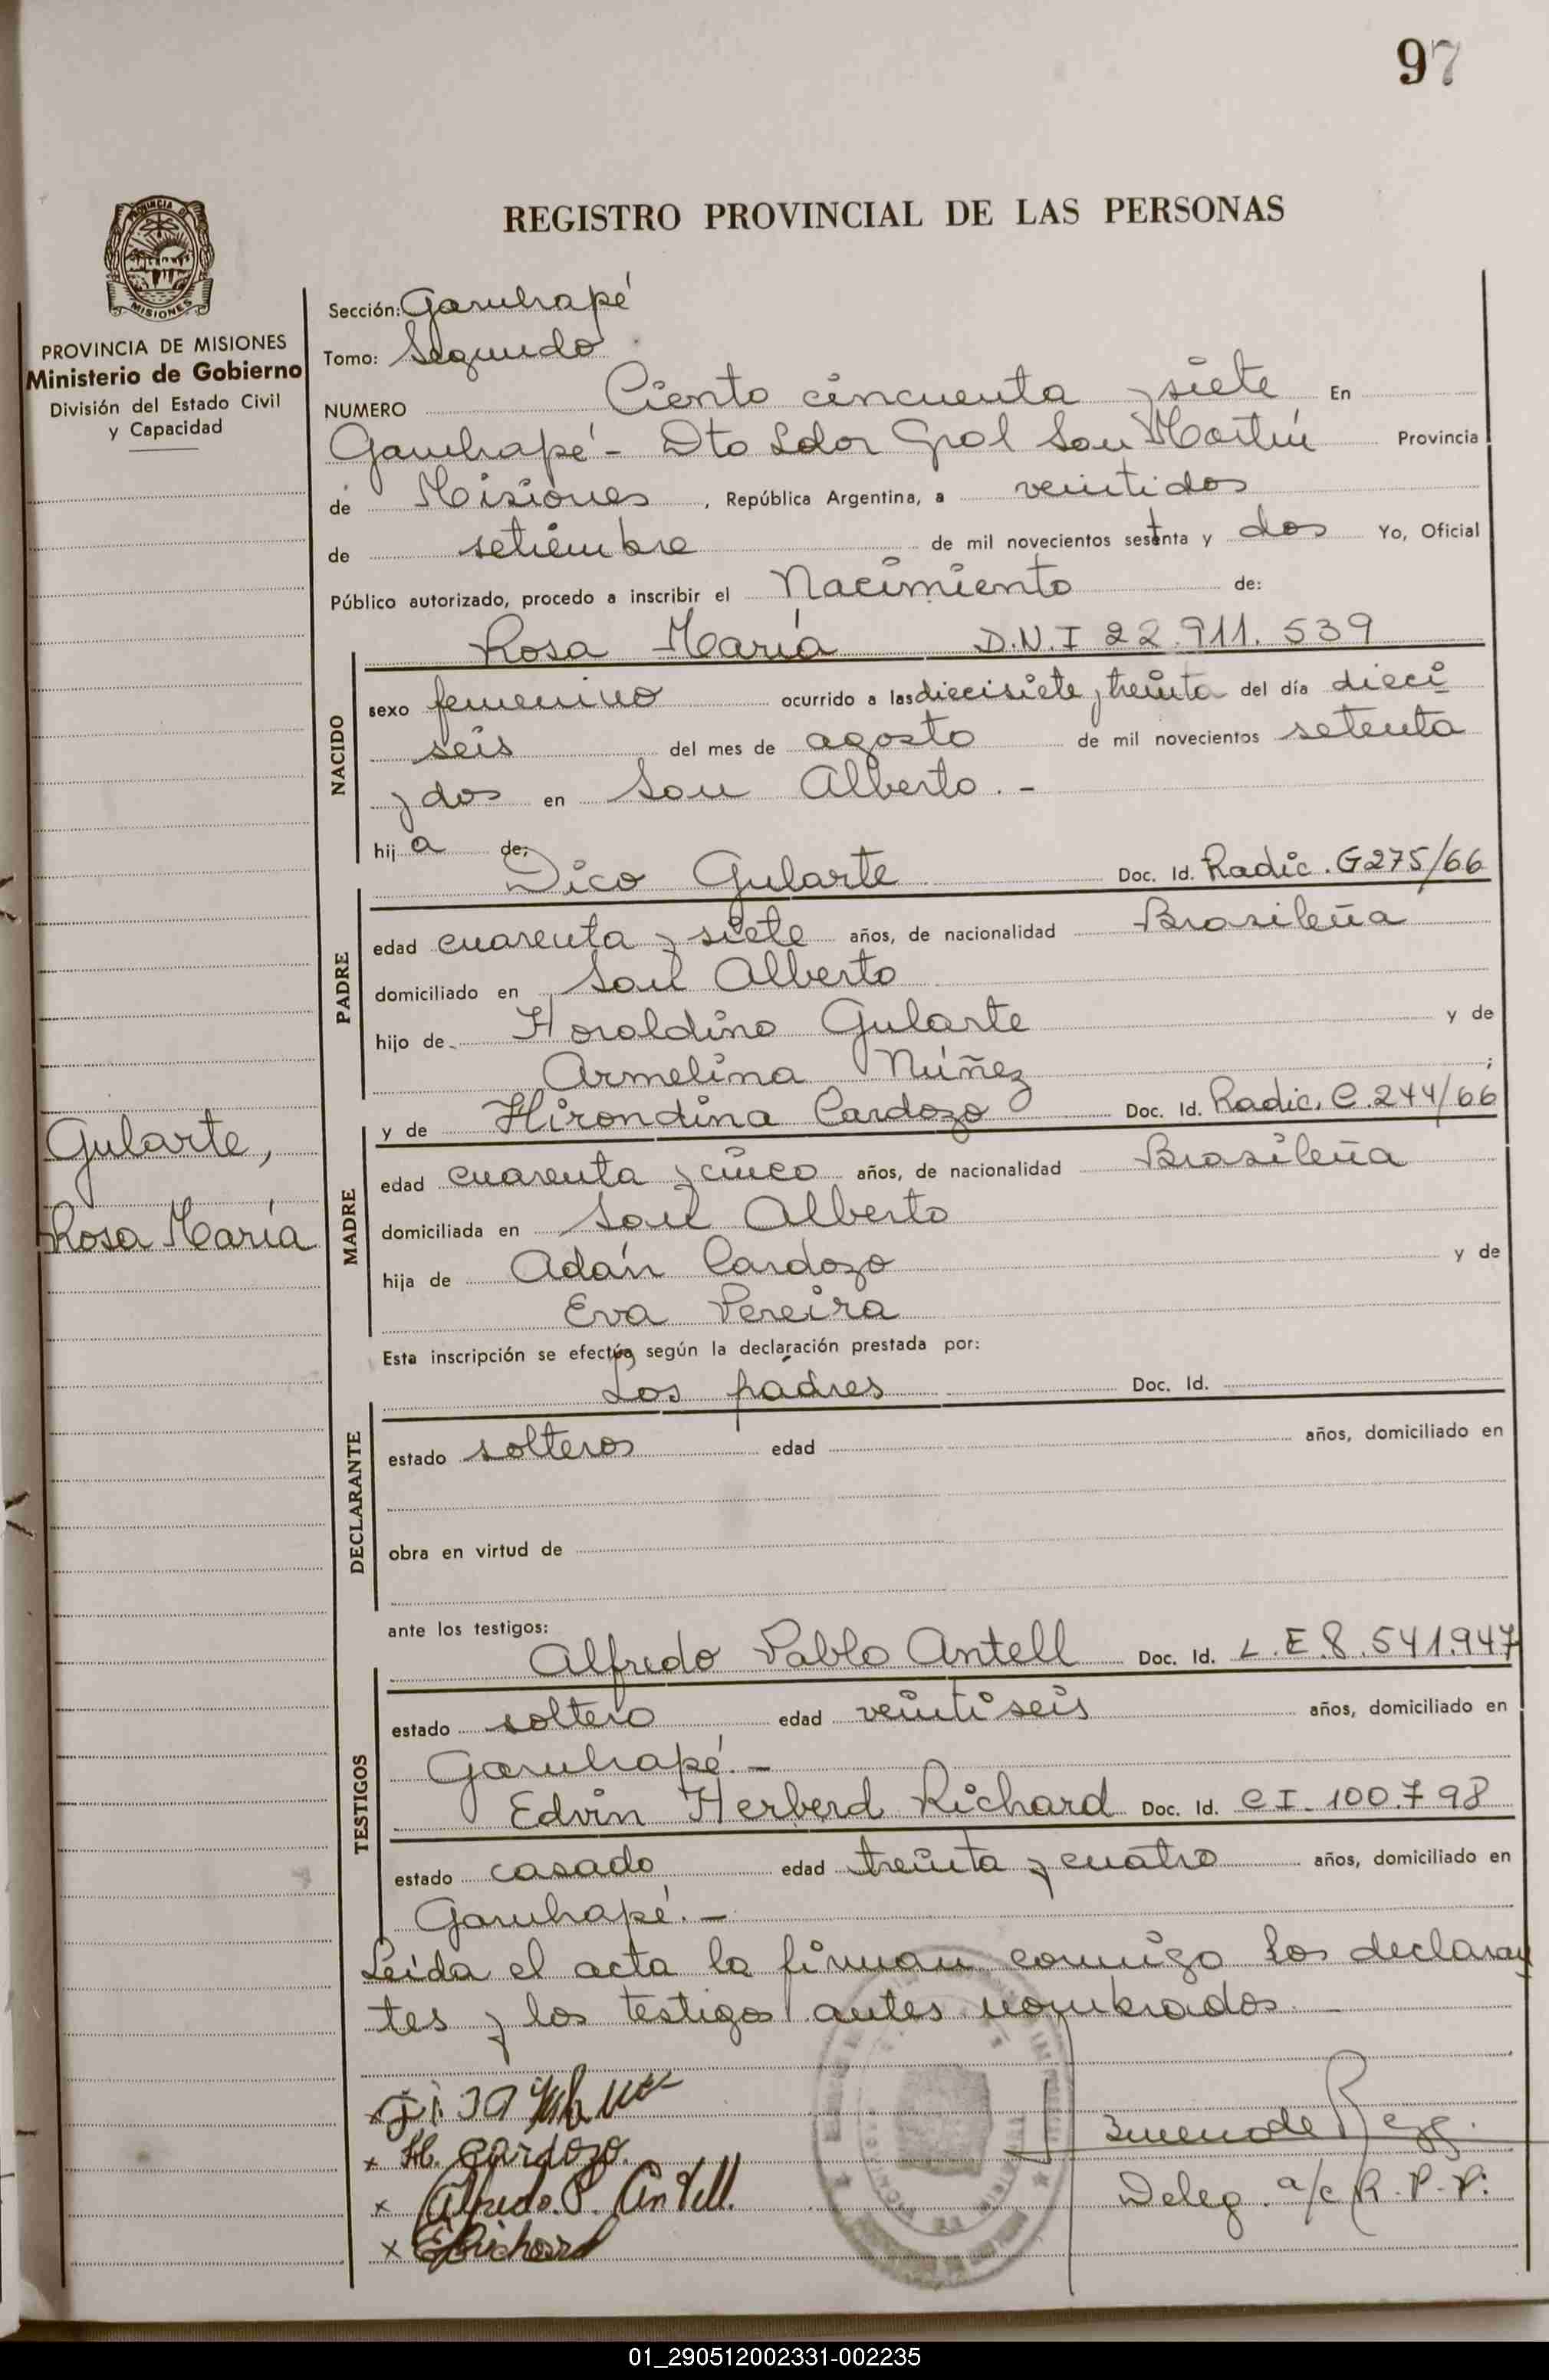 97
PROVINCIA DE
MISIONES
REGISTRO PROVINCIAL DE LAS PERSONAS
PROVINCIA DE MISIONES
Ministerio de Gobierno
División del Estado Civil
y Capacidad
Sección: Garuhapé
Tomo: Segundo
NUMERO Ciento cincuenta y siete En
Garuhapé - Dto Ldor Gral San Martín Provincia
de Misiones, República Argentina, a veintidos
de setiembre de mil novecientos setenta y dos Yo, Oficial
Público autorizado, procedo a inscribir el Nacimiento de:
Rosa María D.N.I 22.911.539
NACIDO
sexo femenino ocurrido a las diecisiete y treinta del día dieci
seis del mes de agosto de mil novecientos setenta
y dos en San Alberto. -
hij a de:
Dico Gularte Doc. Id. Radic. G275/66
PADRE
edad cuarenta y siete años, de nacionalidad Brasileña
domiciliado en San Alberto
hijo de Horaldino Gularte y de
Armelina Núñez ;
y de Hirondina Cardozo Doc. Id. Radic. C.244/66
Gularte,
Rosa María
MADRE
edad cuarenta y cinco años, de nacionalidad Brasileña
domiciliada en San Alberto
hija de Adán Cardozo y de
Eva Pereira
Esta inscripción se efectúa según la declaración prestada por:
Los padres Doc. Id.
DECLARANTE
estado solteros edad años, domiciliado en
obra en virtud de
ante los testigos:
Alfredo Pablo Antell Doc. Id. L.E 8.541.947
TESTIGOS
estado soltero edad veinti seis años, domiciliado en
Garuhapé. -
Edvin Herberd Richard Doc. Id. C I. 100.798
estado casado edad treinta y cuatro años, domiciliado en
Garuhapé. -
Leida el acta la firman conmigo los declaran
tes y los testigos antes nombrados. -
x
x H. Cardozo.
x Alfredo. P. Antell.
x E Richard
Deleg. a/c R. P. P.
01_290512002331-002235